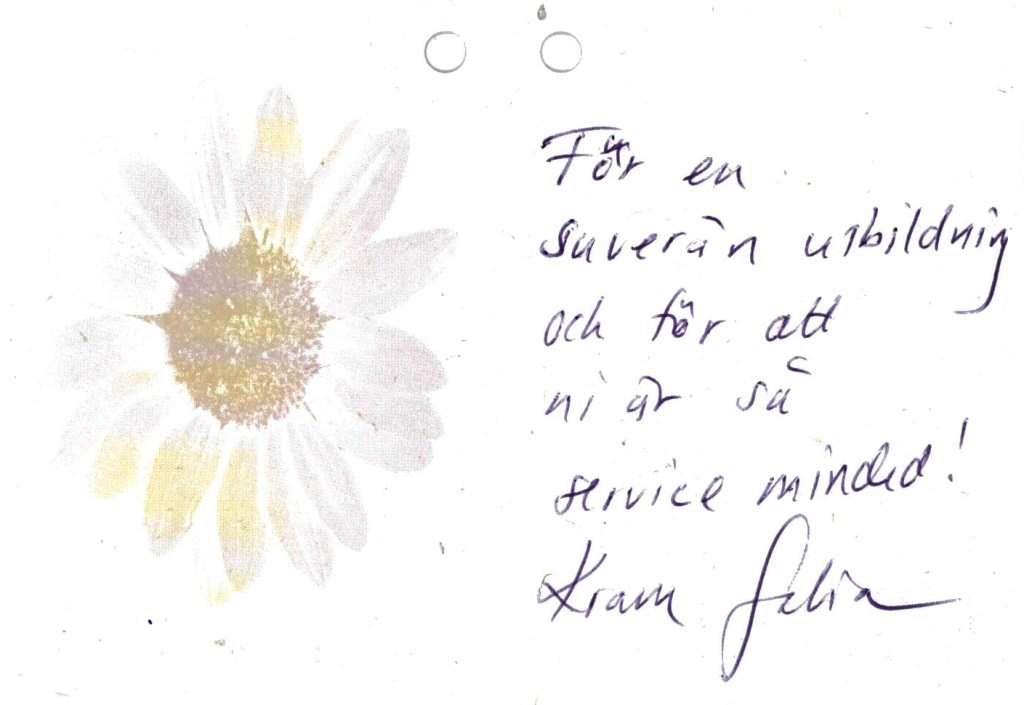 För en
suverän utbildning
och för att
ni är så
service minded!
Kram